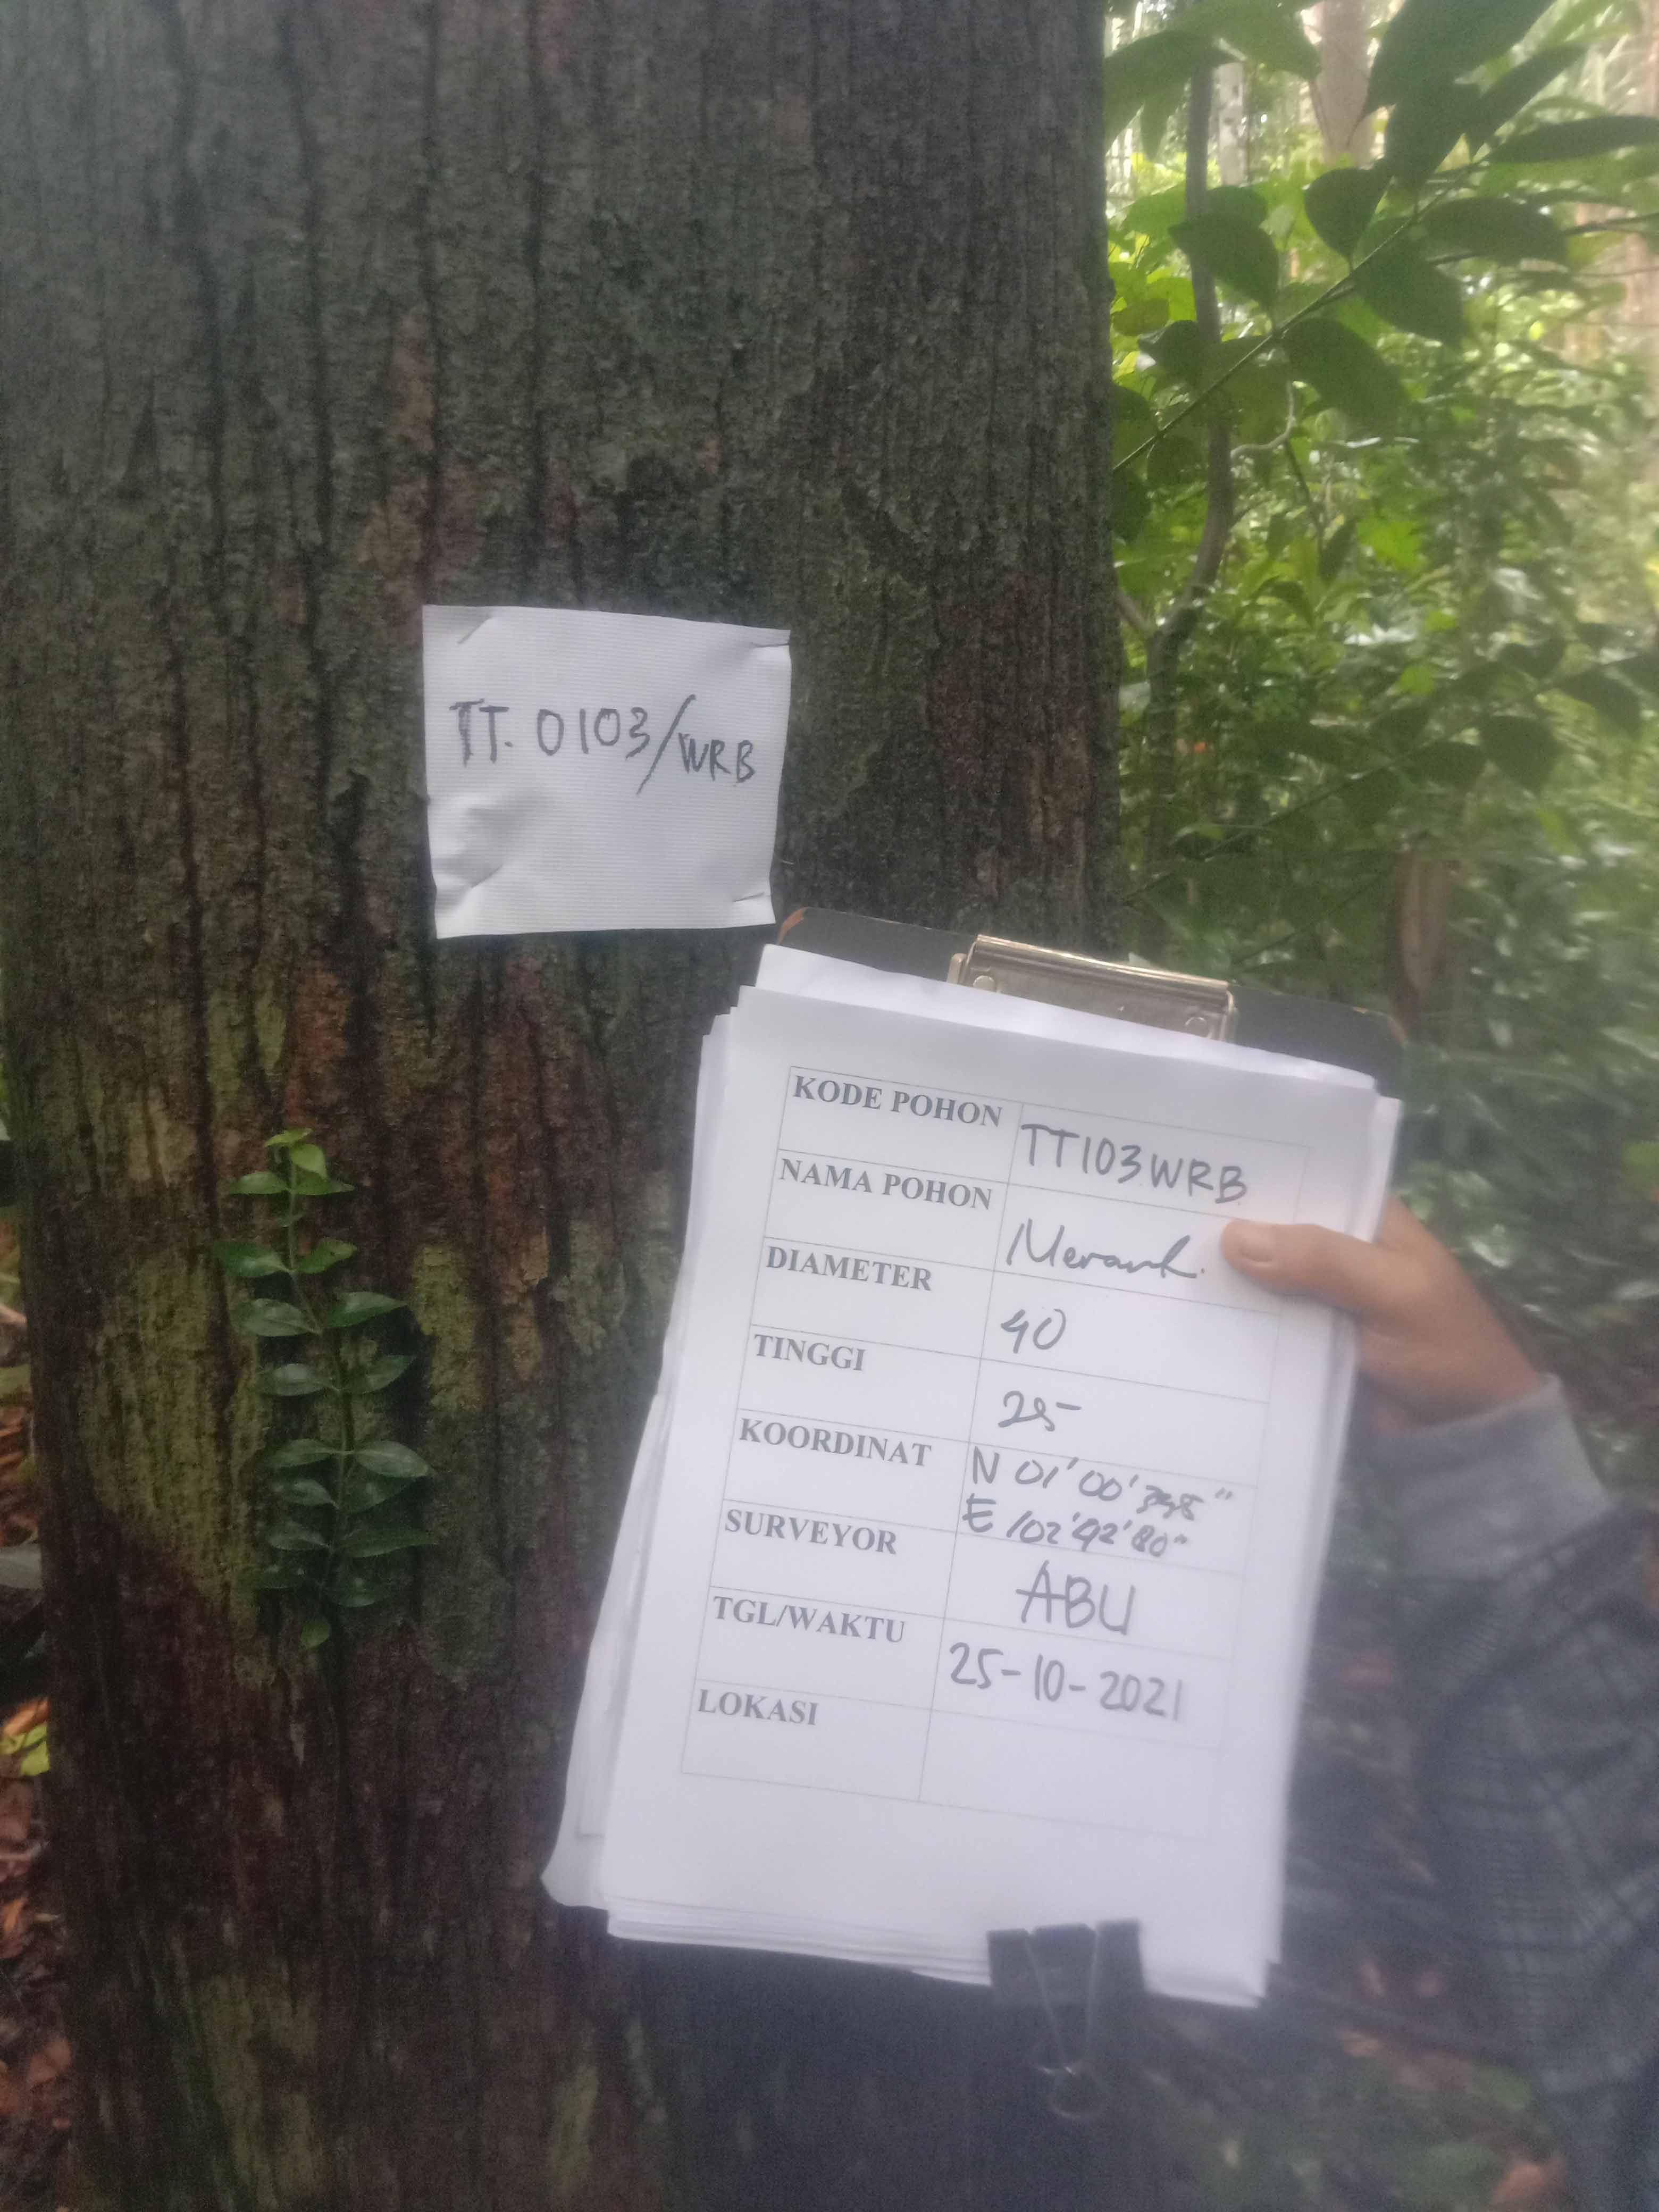 TT. 0103/WRB
KODE POHON TT103WRB
NAMA POHON Meranti
DIAMETER 40
TINGGI 25
KOORDINAT N 01' 00'
E 102' 42' 80"
SURVEYOR ABU
TGL/WAKTU 25-10-2021
LOKASI